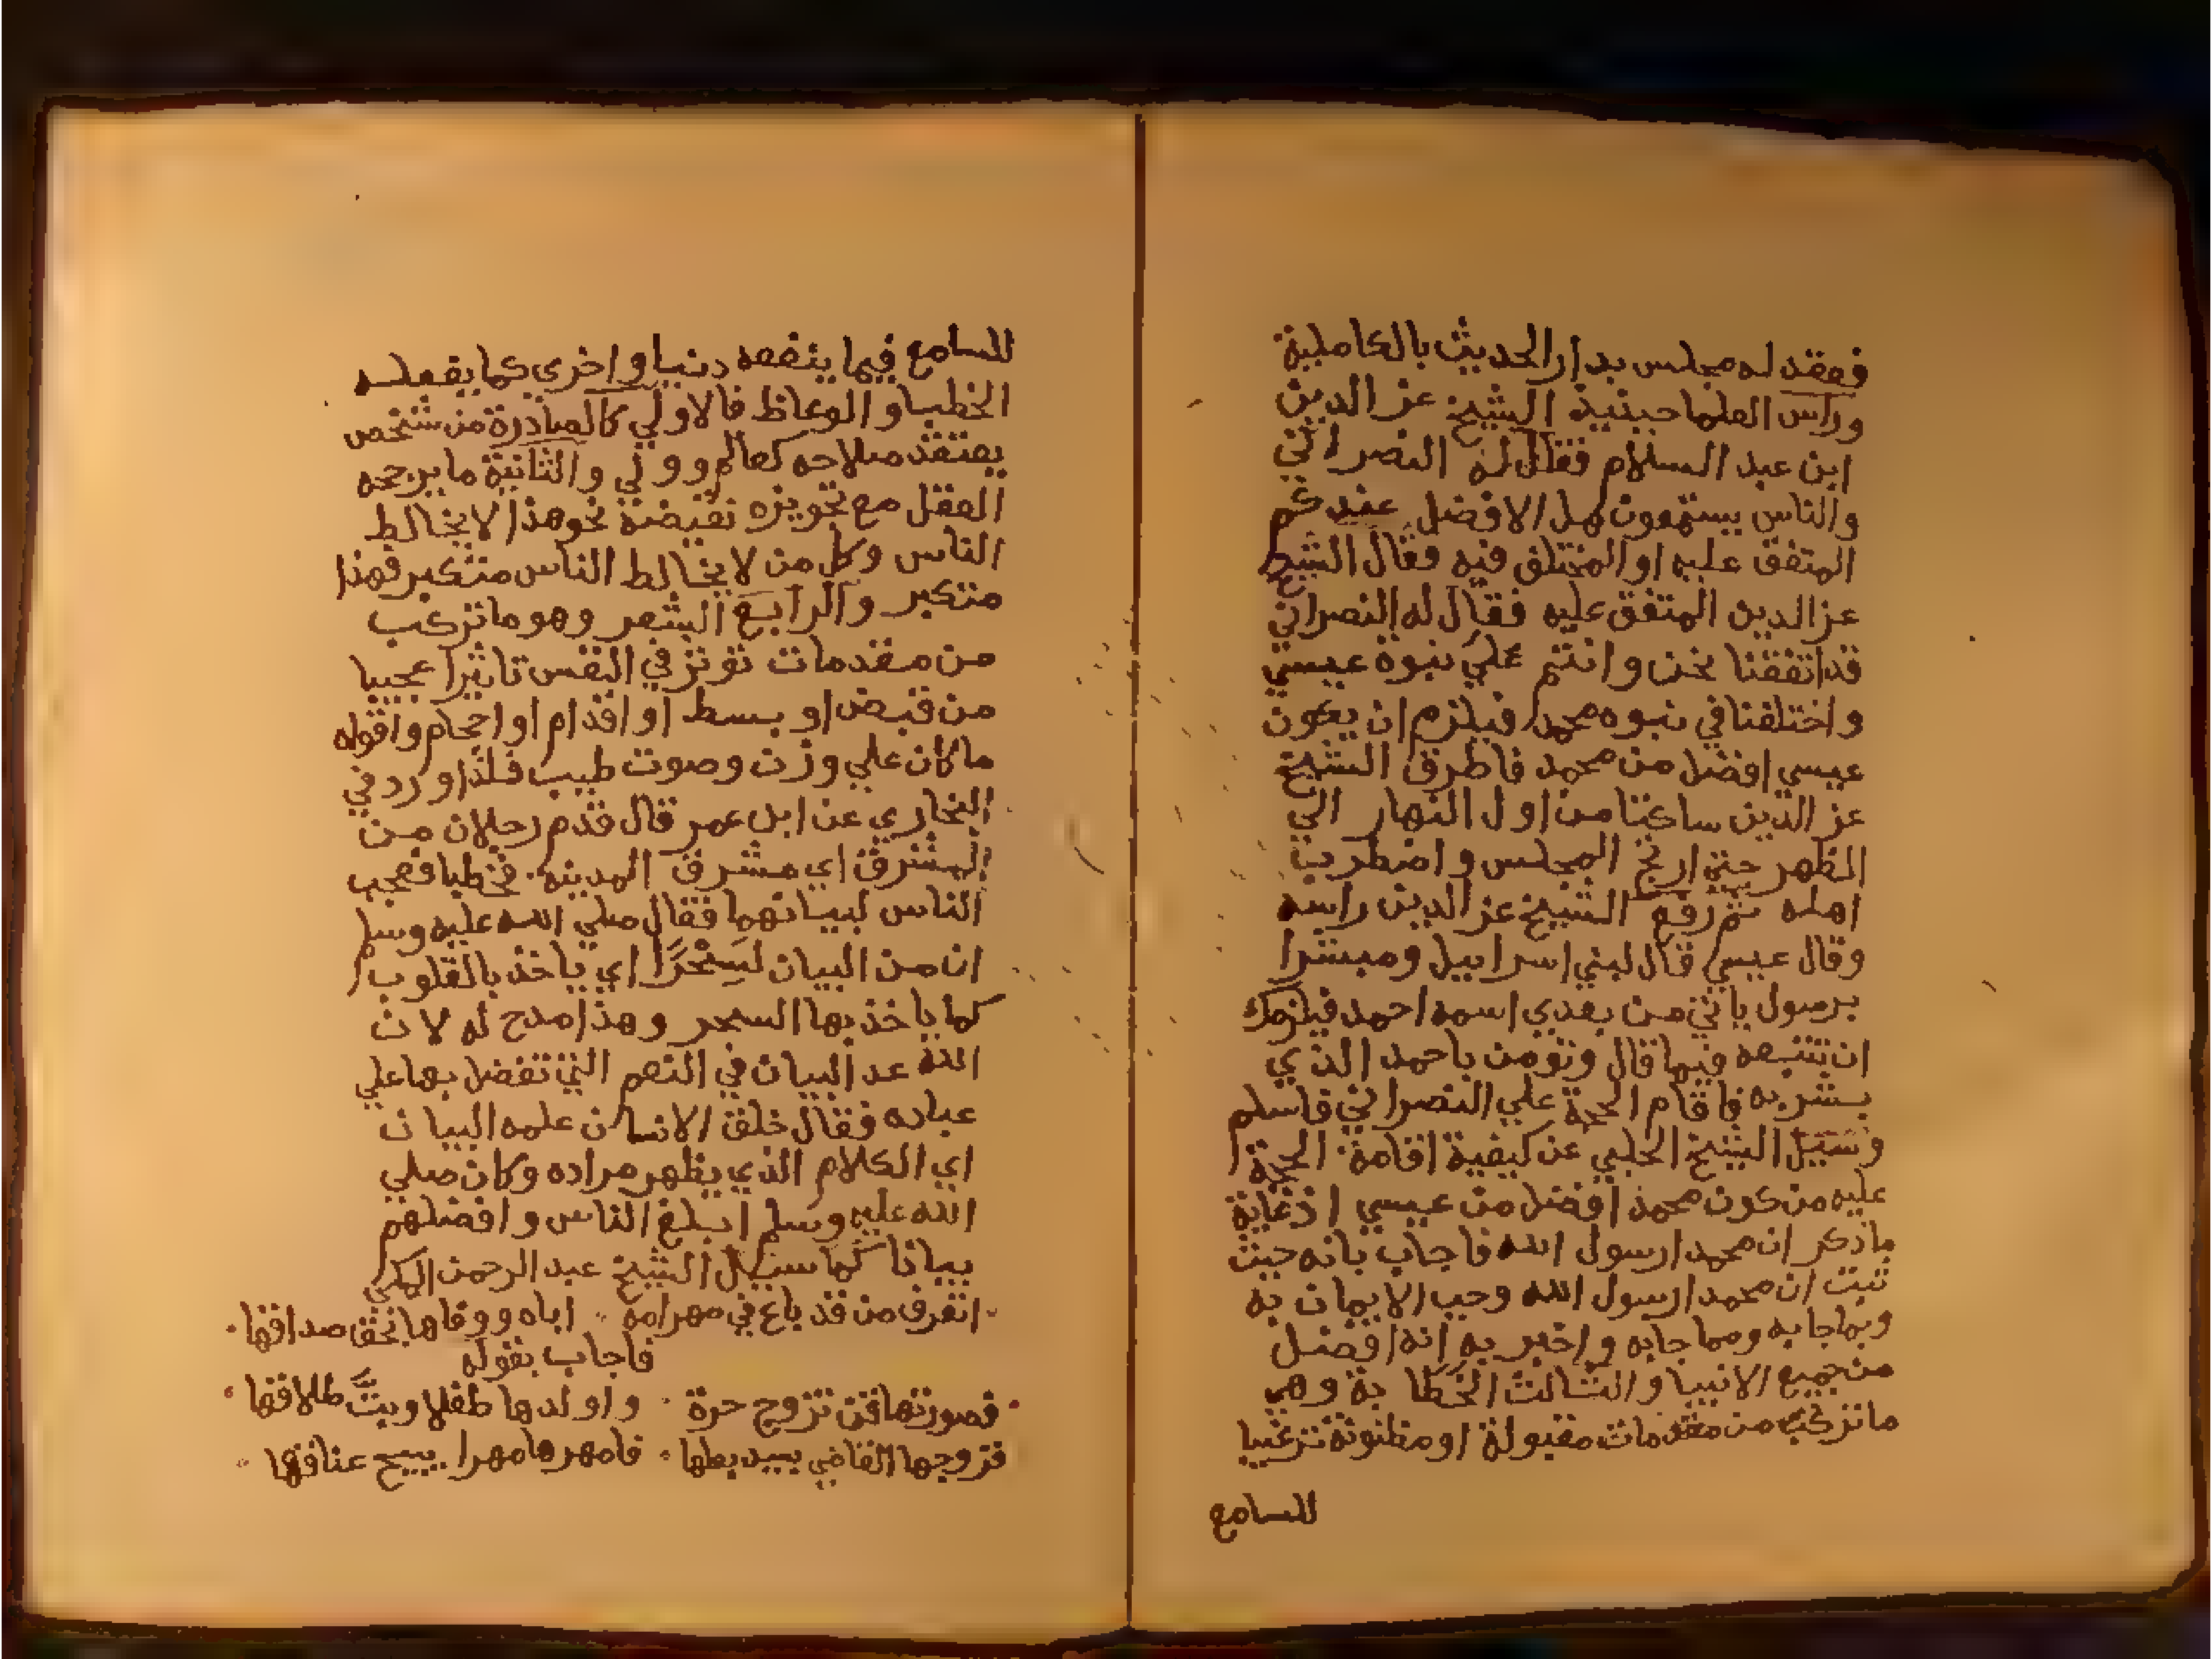 فعقد له مجلس بدار الحديث بالكاملية
وراس العلما حينيذ الشيخ عز الدين
ابن عبد السلام فقال له النصراني
والناس يستمعون هل الافضل عندكم
المتفق عليه او المختلف فيه فقال الشيخ
عز الدين المتفق عليه فقال له النصراني
قد اتفقنا نحن وانتم علي نبوة عيسي
واختلفنا في نبوه محمد فيلزم ان يكون
عيسي افضل من محمد فاطرق الشيخ
عز الدين ساكتا من اول النهار الي
الظهر حتي ارتج المجلس واضطرب
اهله ثم رفع الشيخ عز الدين راسه
وقال عيسي قال لبني اسراييل ومبشرا
برسول ياتي من بعدي اسمه احمد فيلزمك
ان تتبعه فيما قال وتومن باحمد الذي
بشر به فاقام الحجة علي النصراني فاسلم
وسييل الشيخ الحلبي عن كيفية اقامة الحجة
عليه من كون محمد افضل من عيسي اذ غاية
ما ذكر ان محمدا رسول الله فاجاب بانه حيث
ثبت ان محمدا رسول الله وجب الايمان به
وبما جا به ومما جا به واخبر به انه افضل
من جميع الانبيا والثالث الخطابة وهي
ما تركب من مقدمات مقبولة او مظنونة ترغيبا
للسامع
للسامع فيما ينفعه دنيا واخري كما يفعله
الخطبا والوعاظ فالاولي كالصادرة من شخص
يعتقد صلاحه كعالم وولي والثانية ما يرجحه
العقل مع تجويزه نقيضة نحو هذا لا يخالط
الناس وكل من لا يخالط الناس متكبر فهذا
متكبر والرابع الشعر وهو ما تركب
من مقدمات توثر في النفس تاثيرا عجيبا
من قبض او بسط او اقدام او احجام واقواه
ما كان علي وزن وصوت طيب فلذا ورد في
البخاري عن ابن عمر قال قدم رجلان من
المشرق اي مشرق المدينه فخطبا فعجب
الناس لبيانهما فقال صلي الله عليه وسلم
ان من البيان لَسِحْرًا اي ياخذ بالقلوب
كما ياخذ بها السحر وهذا مدح له لان
الله عد البيان في النعم التي تفضل بها علي
عباده فقال خلق الانسان علمه البيان
اي الكلام الذي يظهر مراده وكان صلي
الله عليه وسلم ابلغ الناس وافضلهم
بيانا كما سييل الشيخ عبد الرحمن المكي
اتعرف من قد باع في مهر امه اباه ووفاها بحق صداقها
فاجاب بقوله
فصورتها قن تزوج حرة واولدها طفلا وبتَّ طلاقها
فزوجها القاضي بسيد بعلها فامهرها مهرا يبيح عناقها